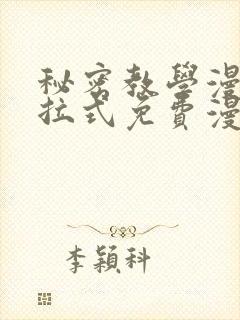 秘密教學漫
拉式免費漫
李穎科